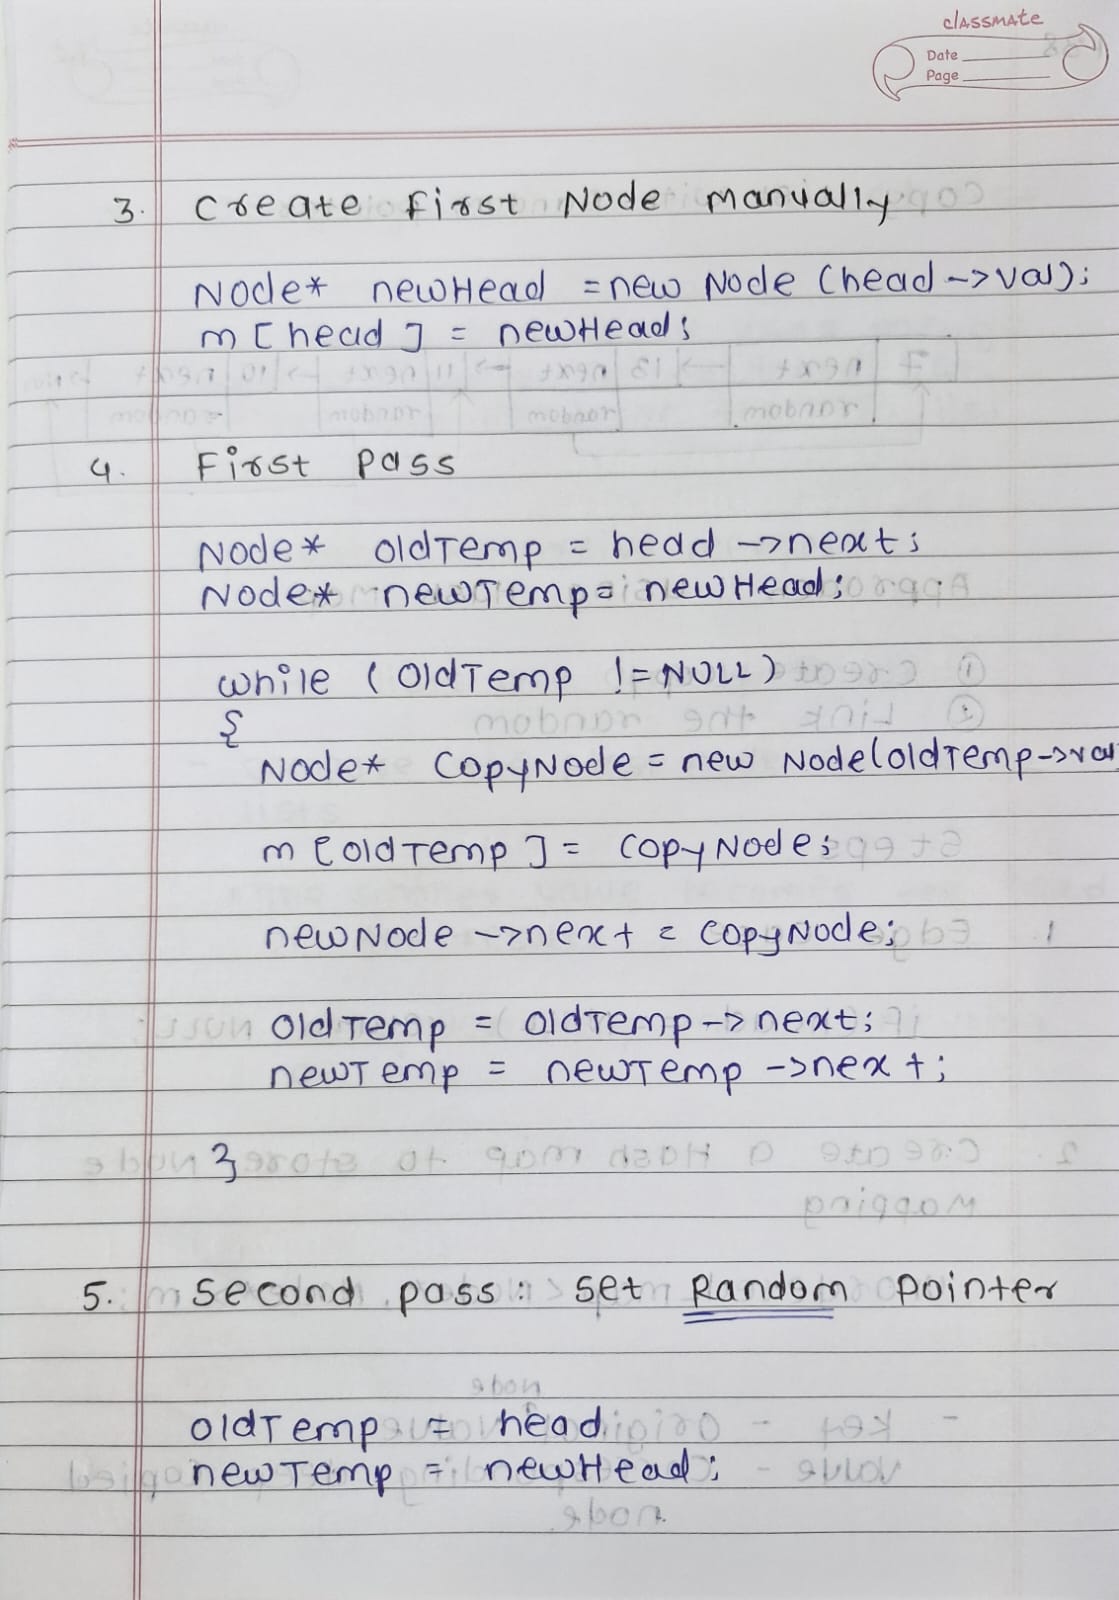 classmate
Date
Page
3. Create First Node manually
Node* newHead = new Node (head->val);
m[head] = newHead;
4. First pass
Node* oldTemp = head ->next;
Node* newTemp = newHead;
while (oldTemp != NULL)
{
Node* copyNode = new Node(oldTemp->val
m[oldTemp] = copyNode;
newNode ->next = copyNode;
oldTemp = oldTemp->next;
newTemp = newTemp ->next;
}
5. Second pass: set Random pointer
oldTemp = head
newTemp = newHead;